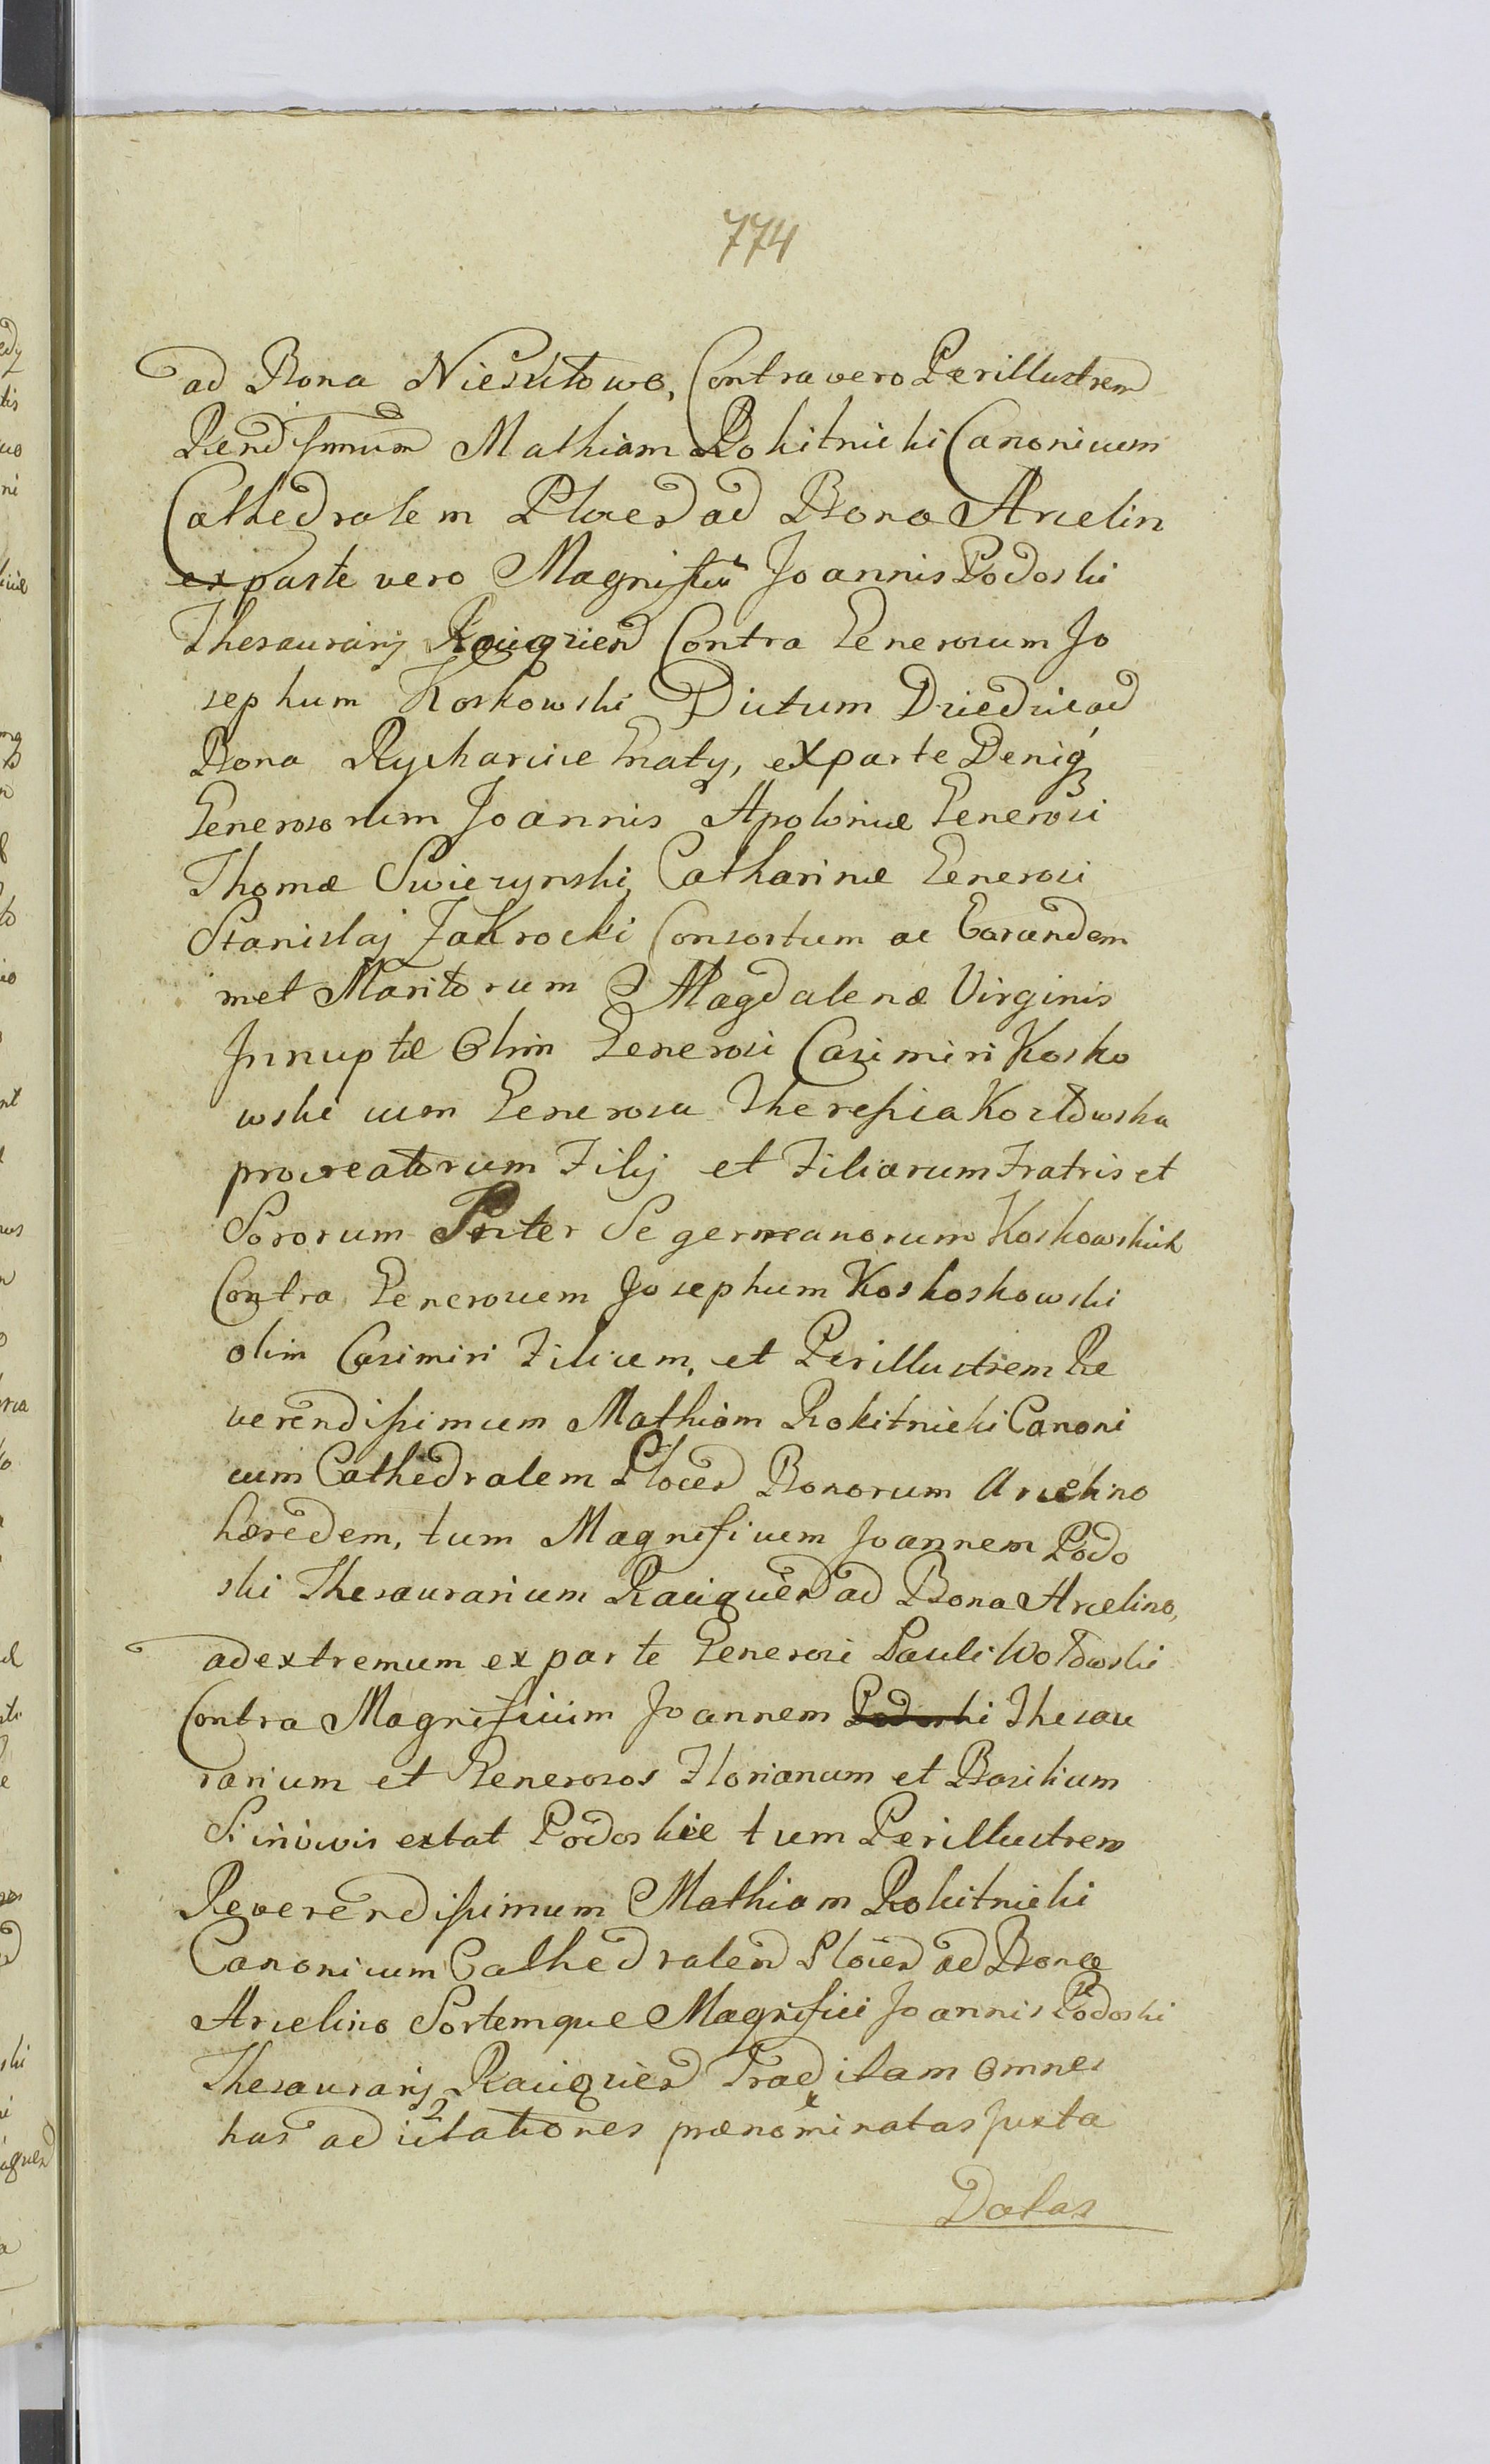 774
ad Bona Nieszkowo, Contra vero Perillustrem
Rendissimum Mathiam Rokitnicki Canonicum
Cathedralem Plocen ad Bona Arcelin
ex parte vero Magnifici Joannis Podoski
Thesaurarij Raciązien Contra Generosum Jo
sephum Koskowski Dictum Dziedzic ad
Bona Rycharcice Gnaty, ex parte Deniq3
Generosorum Joannis Apoloniæ Generosi
Thomæ Swierzynski, Catharinæ Generosi
Stanislaj Zakrocki Consortum ac Earundem
met Maritorum Magdalenæ Virginis
Innuptæ Olim Generosi Casimiri Kosko
wski cum Generosa Theresia Kozłowska
procreatorum Filij et Filiarum Fratris et
Sororum Inter Se germanorum Koskowskich
Contra Generosum Josephum Koskoskowski
olim Casimiri Filium, et Perillustrem Re
verendissimum Mathiam Rokitnicki Canoni
cum Cathedralem Plocen Bonorum Arcelino
hæredem, tum Magnificum Joannem Podo
ski Thesaurarium Raciązien ad Bona Arcelino,
ad extremum ex parte Generosi Pauli Wołowski
Contra Magnificum Joannem Podoski Thesau
rarium et Generosos Florianum et Basilium
Si in vivis extat Podoskie tum Perillustrem
Reverendissimum Mathiam Rokitnicki
Canonicum Cathedralem Plocen ad Bona
Arcelino Sortemque Magnifici Joannis Podoski
Thesaurarij Raciązien Traditam omnes
has ad citationes prænominatas Juxta
Datas